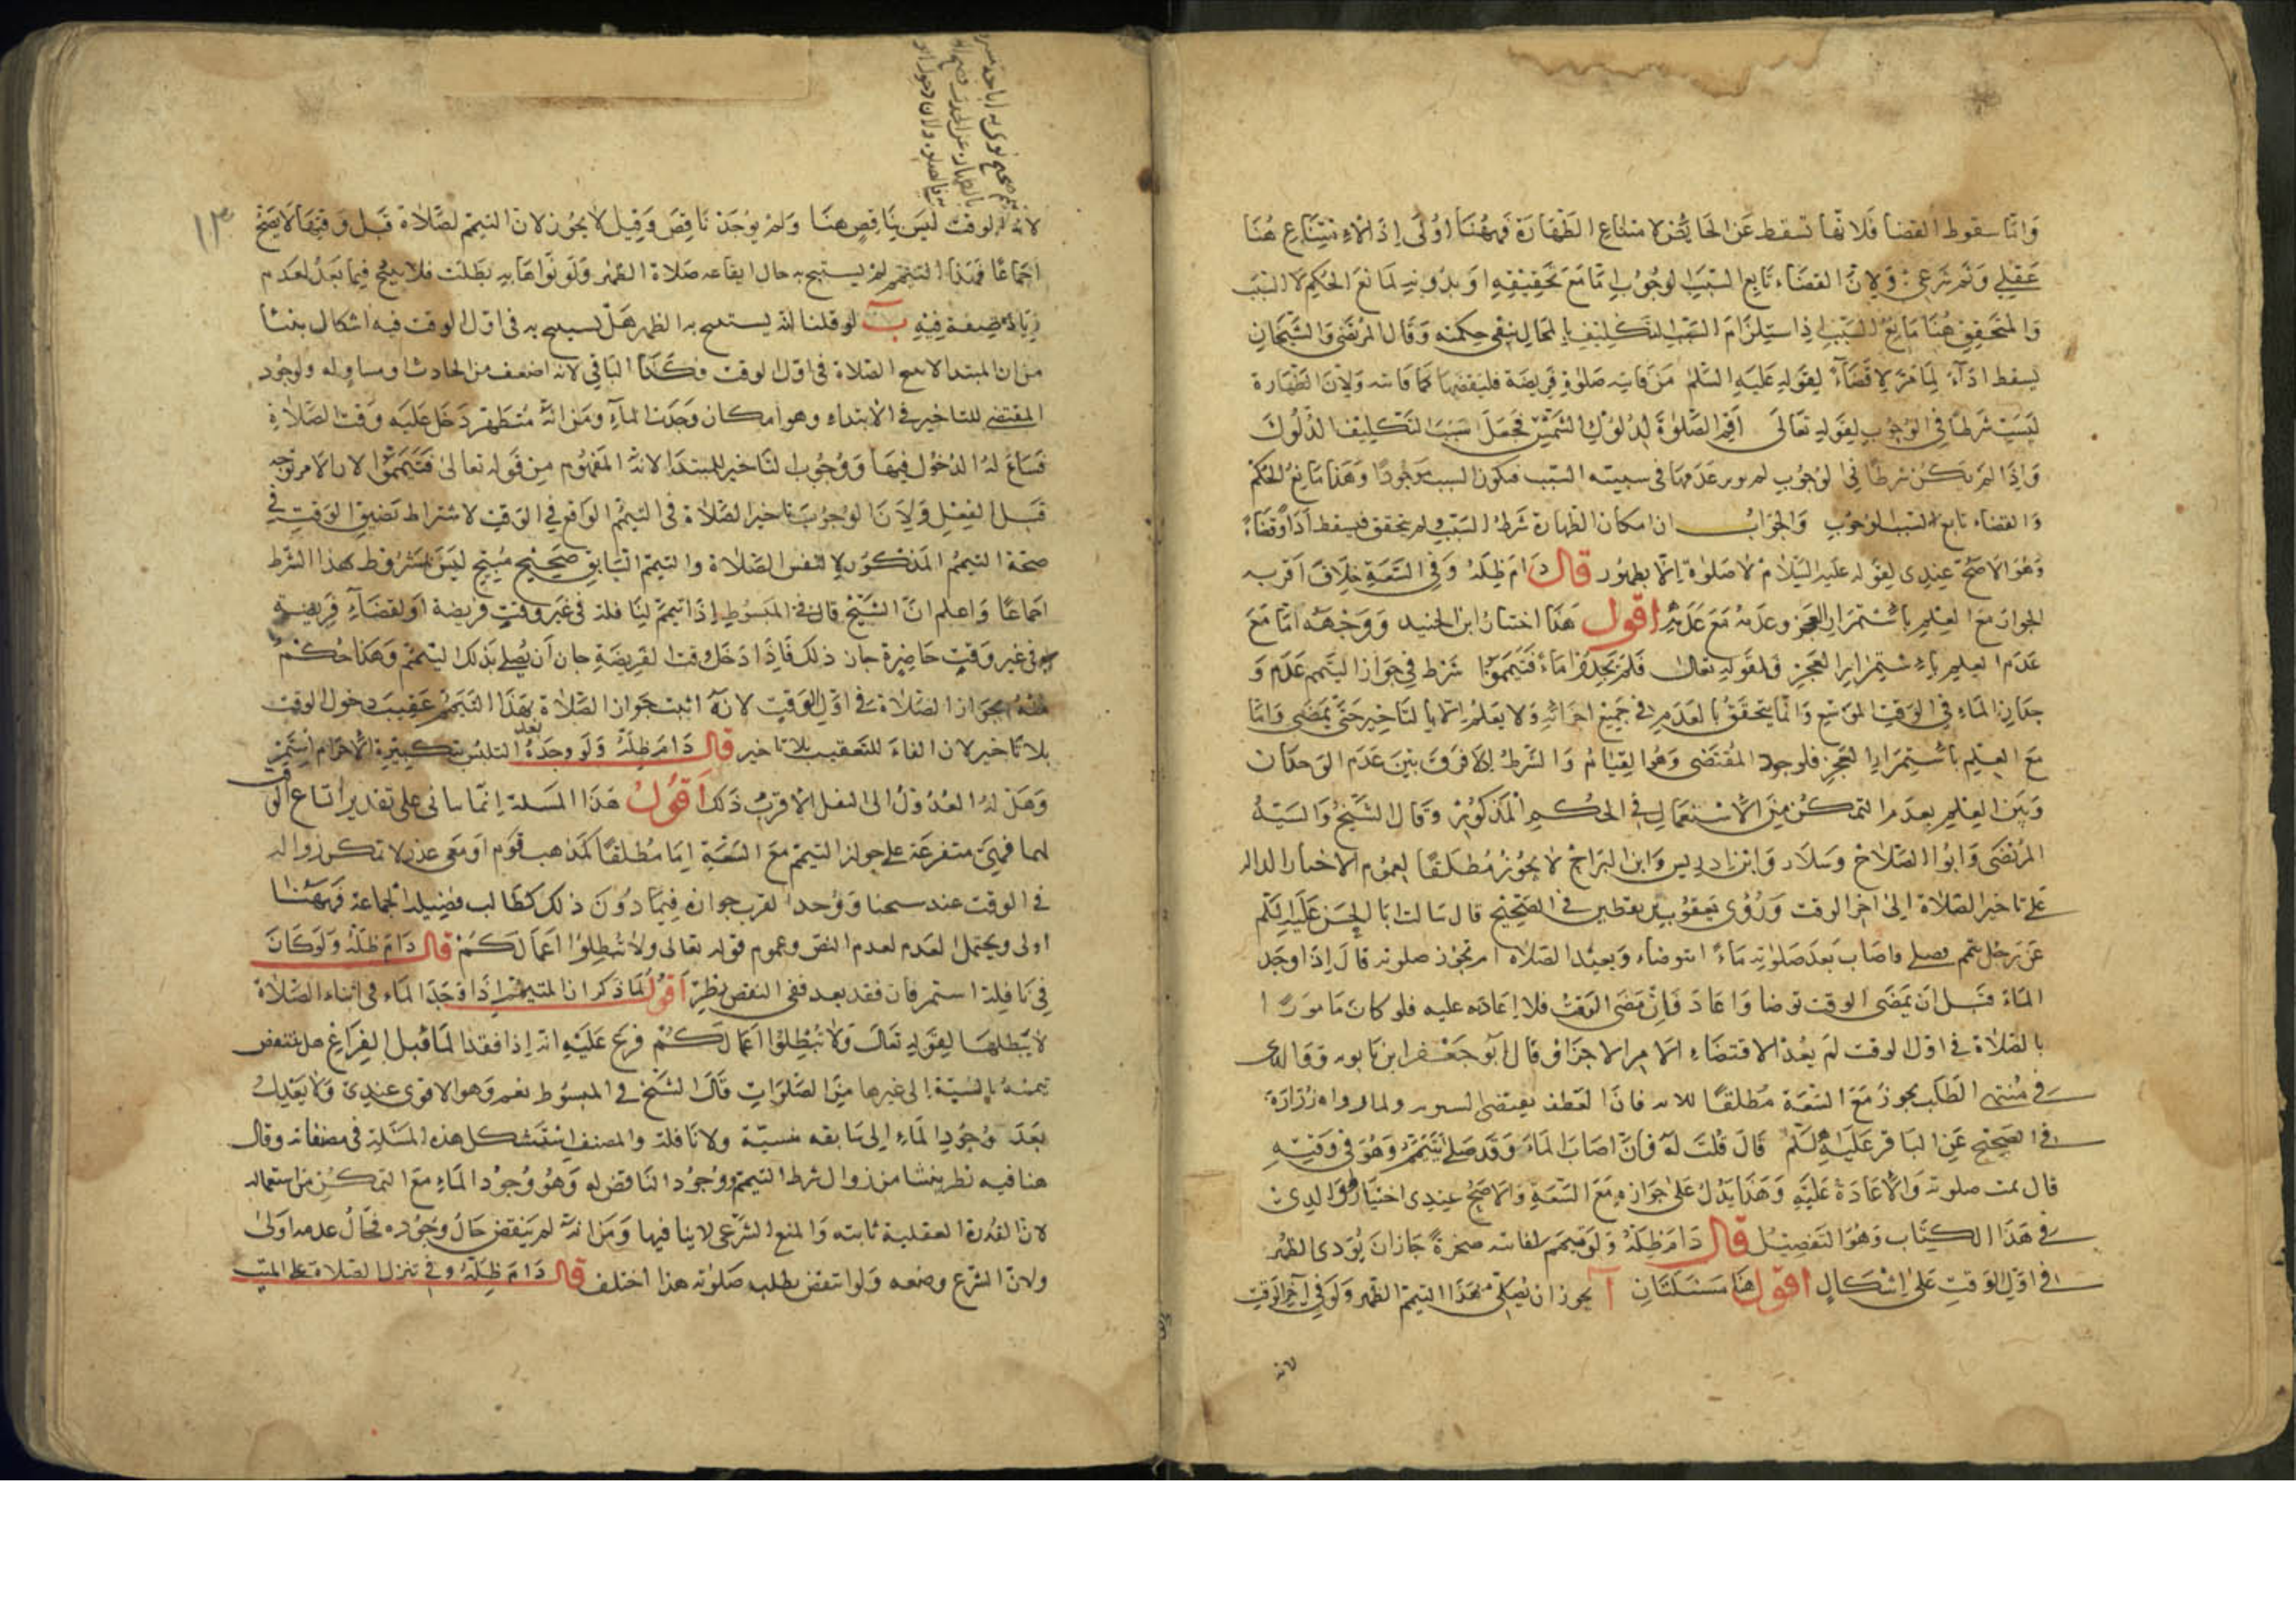 وَامَّا سقوط القضا فَلانّها تسقط عَن الحائض لامتناع الطَهَارَة فَههُنَا اَوْلَى اِذ الاِمْتِنَاع هُنَا
عَقْلِى وَثم شَرْعِىّ وَلِانّ القضَاء تَابع لسَبَبِ الوجُوبِ امَّا مَعَ تَحَقّقِهِ اوَبدُونِهِ لمَانع الحُكِم لا السَبَب
وَالمتَحَقِق هُنَا مَانِعُ السَبَب اِذِ اسْتِلزَام السَبَب لتكليف بالمحَال ينفى حِكمته وَقَال المرتضَى وَالشَيخَان
يسقط ادَآءً لِمَا مَرّ لا قضَآءً لِقَولِهِ عَلَيه السَّلم مَن فَاتته صَلوة فَرِيضَة فليقضهَا كمَا فَاتته وَلِانّ الطهَارة
لَيسَت شَرطًا فِى الوجُوب لِقَولِهِ تَعَالَى اَقِم الصَّلوٰةَ لِدُلُوكِ الشَّمْسِ فَجَعَل سَبَبَ التَكلِيف الدُلُوكَ
وَاذَا لم تكن شرطًا فِى الوُجُوب لم يوثر عَدَمهَا فى سببية السَبب فيكون السبب مَوجُودًا وَهَذا مَانعُ الحُكم
وَالقضاء تابع لسَبب الوجُوب وَالجوابُ ان امكان الطهارة شَرط السَبَب وَلم يتحقق فيسقط اَدَاءً وَقضَاءً
وَهُوَ الاَصَحّ عِندِى لِقَوله عَليهِ السَّلام لا صَلوٰة اِلّا بطهُور قال دَامَ ظِلّهُ وَفِى السَّعَةِ خِلافٌ اَقرَبه
الجوازُ مَعَ العِلمِ بِاسْتِمْرَارِ العَجز وعدَمه مَعَ عَدَمِهِ اقول هَذَا اختيارُ ابن الجنيد وَوَجْهُه امّا مَعَ
عَدَم العِلم بِاسْتِمْرَار العَجزِ فَلِقَولِهِ تعَالى فَلَم تَجِدُوا مَاءً فَتَيَمَّمُوا شَرَط فِى جَوَاز التَيَمم عَدَم وِ
جدَانِ المَاءِ فى الوَقت الموَسّع وَانما يتحَقَقُ بالعَدَم فى جَمِيع اجزائِهِ وَلا يعلم الا بالتَاخِير حَتّى يَمضِى وَامَّا
مَعَ العِلِم بِاسْتِمَرار العَجزِ فلوجود المُقتَضى وَهُوَ القِيَامُ وَالشَرطُ اِذ لا فَرق بَيَن عَدَم الوجدَان
وَبَين العِلم بعدَم التمكُن مِنَ الاسْتِعمَال فى الحُكمِ المذكُور وَقَال الشَّيخُ وَالسَيدُ
المرتضَى وَابُو الصَّلاح وَسَلّار وَابن ادريس وَابن البَراج لا يجُوز مُطلَقًا لعموم الاخبار الداله
عَلى تاخير الصَّلاة الىٰ اخر الوقت وَرَوٰى يَعقُوب بن يقطين فى الصَحِيح قال سَالت ابَا الحَسَن عَليه السَّلم
عَن رَجُل تيمم فصلى فاصَابَ بَعدَ صَلوٰتِه مَاءً اَيتوضاء وَيعيُد الصَلاة ام تجُوز صلوته قَال اِذَا وجَد
المَاءَ قَبل اَن يَمضَى الوقت توضا وَاعادَ فَاِن مَضَى الوَقتُ فلا اِعَادَه عليه فلو كان مَامورًا
بالصَّلاة فى اوّل الوقت لَم يَعُد لاقتضَاءِ الامر الاجزاء وَقال ابُو جَعفر ابن بابويه وَوَالدى
فى مُنتهى الطلَب يجوزُ مَعَ السَّعَة مُطلقًا للايه فان العَطف يقتضى ولما رواه زُرَارَةَ
فى الصَحِيْح عَن البَاقر عَلَيه السَّلم قَالَ قُلت لهُ فَانّ اصَابَ المَاءَ وَقَد صَلى بِتَيَمُّم وَهُوَ فى وَقتِهِ
قال تمت صلوته وَلا اِعَادَةَ عَلَيه وَهَذَا يَدُل عَلى جَوَازه مَعَ السَّعَةِ وَالاصَحّ عِندِى اختِيَارُ وَالدِى
فى هَذَا الكِتَاب وَهُوَ التَفصِيل قال دَامَ ظِلّهُ وَلَو تيمم لفائته ضحوَةً جَازَ انَ يُؤدى الظهر
فى اوّل الوَقتِ عَلى اِشكَالٍ اقول هُنَا مَسْئلَتَانِ آ يجوز ان يُصَلى بهَذَا التيمم الظهر وَلَو فى آخِر الوَقتِ
لانه
لانّه الوقتَ ليسَ بِنَاقِضٍ هنَا وَلم يُوجَد نَاقِض وَقِيل لا يجُوز لان التيمم لصَّلاة قبل وَقتها لا يَصِحّ
اِجمَاعًا فَهَذا التيمّم لم يستبح به حال ايقاعه صَلاة الظهر وَلَو نوَاهَا به بَطَلت فلا يبيح فيما بَعدُ لعَدم
زِيَادَة صِفة فِيْهِ بَ لو قلنا انّه يستبيح به الظهر هَل يستبيح به فى اوّل الوقت فيه اشكال ينشأ
من ان المبتدا لا يبيح الصَّلاة فى اوّل الوقت وَكَذَا البَاقى لانه اضعف من الحادث او مساو له ولوجُود
المقتضى للتاخير فى الابتداء وهو امكان وجدَان المآءِ ومن انّه مُتَطَهّر دَخَل عَلَيه وَقت الصَّلاٰة
فسَاغَ لهُ الدُخُول فيهَا وَوُجُوب التَاخير للمبتدَا لانّه المَفهُوم مِن قَوله تعالىٰ فَتَيَمَّمُوا لان الامر توجّه
قبَل الفِعْل وَلِانَ الوجُوبَ تاخير الصَّلاة فى التيمم الوَاقع فى الوَقت لاشتراط تضيق الوَقتِ فى
صحّة التيمم المَذكُور لا لنفس الصَّلاة والتيمم السَّابق صَحِيْح مُبِيح لَيسَ بمَشرُوطٍ بهذا الشرط
اجماعًا وَاعلم انّ الشيخ قال فى المَبسُوطِ اِذَا تيمم لنَافلة فى غير وَقتِ فريضة اَو لقضَآءِ فَرِيضة
فى غير وَقتٍ حَاضِرة جاز ذلك فَاذَا دَخَل وَقت الفَرِيضَة جاز اَن يصلى بذلك التيمم وَهَذا حُكمٌ
مِنهُ بجَواز الصَّلاة فى اوّل الوَقت لانهّ اثبت جَواز الصَّلاة بهَذَا التَيَمّم عَقِيبَ دخول الوقت
بلا تاخير لان الفاءَ للتعقيب بلا تاخير قال دَامَ ظِلّهُ وَلَو وجَدهُ بعد التلبُس بتكبيرة الاحرام استمر
وَهَل لهُ العدُول الى النفل الاقربُ ذَلك اَقُولُ هَذَا المَسئلة اِنّمَا تاتى على تقدير اتساع الوقت
لهما فهىَ متفرعة على جواز التيمم مَعَ السَّعَةِ اِمّا مُطلقًا كمذهب قوم اَو مَعَ عذر لا تمكن زواله
فى الوقت عند شيخنا وَوَجه القرب جوازه فيمَا دوُنَ ذلك كطَالب فضِيلة الجماعة فَههُنَا
اولى ويحتملُ العدَم لعدم النصّ وعموم قوله تعالى وَلا تُبطِلُوا اَعمَالَكمْ قال دَامَ ظِلّهُ وَلَو كَانَ
فِى نَافِلة استمر فان فقد بعد ففى النقض نظَر اَقُولُ لمّا ذكر انّ المتيمّم اِذَا وَجَدَ المَاء فى اثناءِ الصَّلاة
لا يُبطلهَا لِقَوله تعَالى وَلا تُبْطِلُوُا اَعمَالَكُمْ فرَع عَلَيْهِ انّه اِذا فقد المَا قبل الفِراَغ هل ينتقض
تيممه بالنسبة الى غيرها مِنَ الصَّلوَات قَالَ الشَيخ فى المبسُوط نعم وَهو الاقوى عندِى وَلا يعَدِل
بَعدَ وجُودِ المَاءِ اِلى سَابقه منسيّة ولا نَافلة والمصنف استَشكل هذه المَسئلة فى مصنفاته وقال
هنا فيه نظر ينشا من زوال شرط التيمّم وَوجُود الناقض له وَهُو وُجُود المَاءِ مَعَ التمكُن من استعماله
لانّ القدرة العقلية ثابته وَالمنع الشرعى لا ينافيها وَمَن انّه لم يَنقض حَالَ وجُوده فحَالُ عدمه اَولىٰ
ولانّ الشرع وضعه وَلَو انتقض بطلت صَلوٰته هذا اختلف قال دَامَ ظِلّهُ وفى تنزل الصَّلاة على الميت
١٣